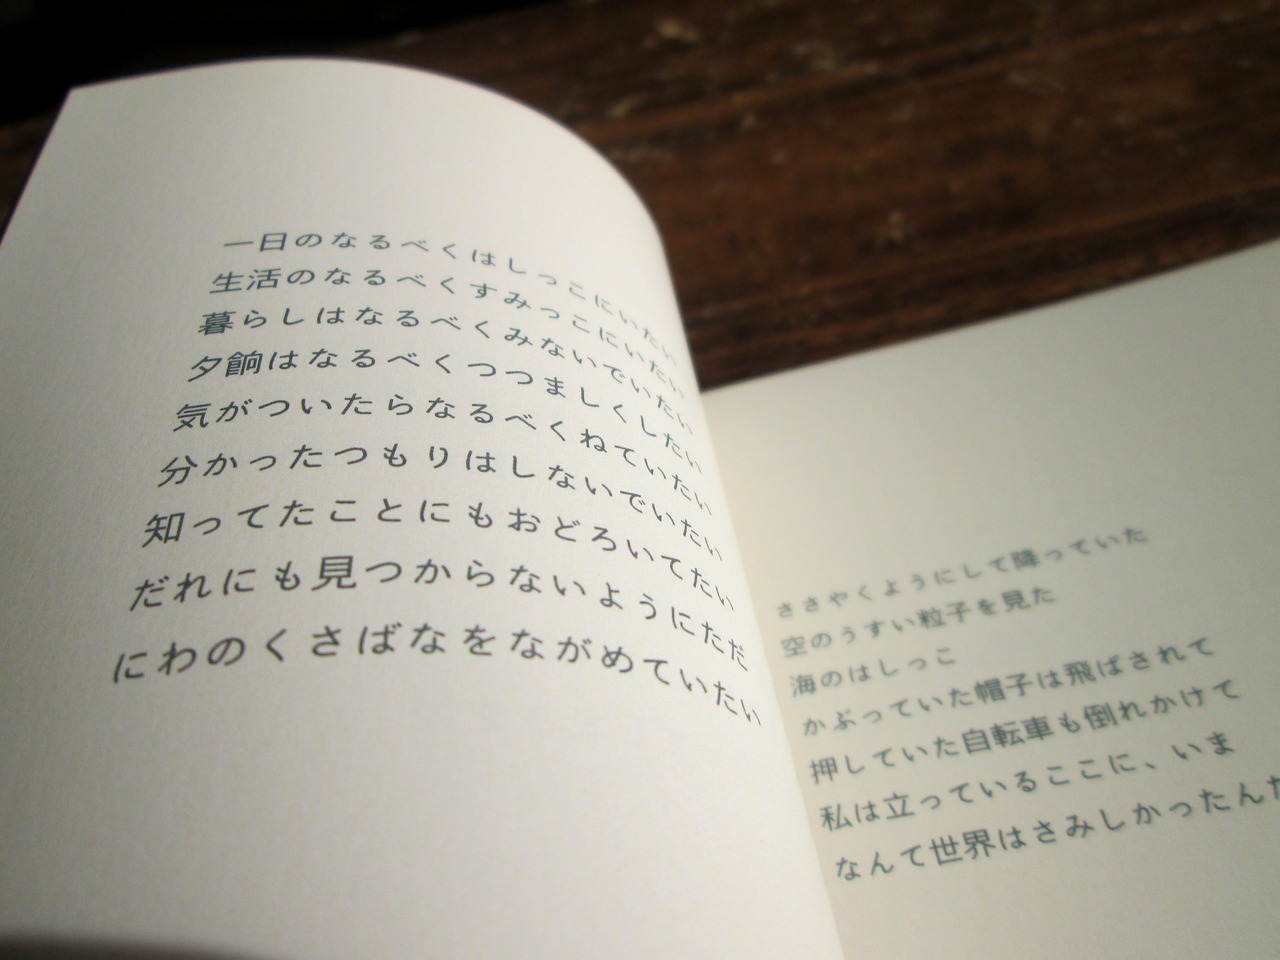 一日のなるべくはしっこにいたい
生活のなるべくすみっこにいたい
暮らしはなるべくみないでいたい
夕餉はなるべくつつましくしたい
気がついたらなるべくねていたい
分かったつもりはしないでいたい
知ってたことにもおどろいてたい
だれにも見つからないようにただ
にわのくさばなをながめていたい
ささやくようにして降っていた
空のうすい粒子を見た
海のはしっこ
かぶっていた帽子は飛ばされて
押していた自転車も倒れかけて
私は立っているここに、いま
なんて世界はさみしかったんだ